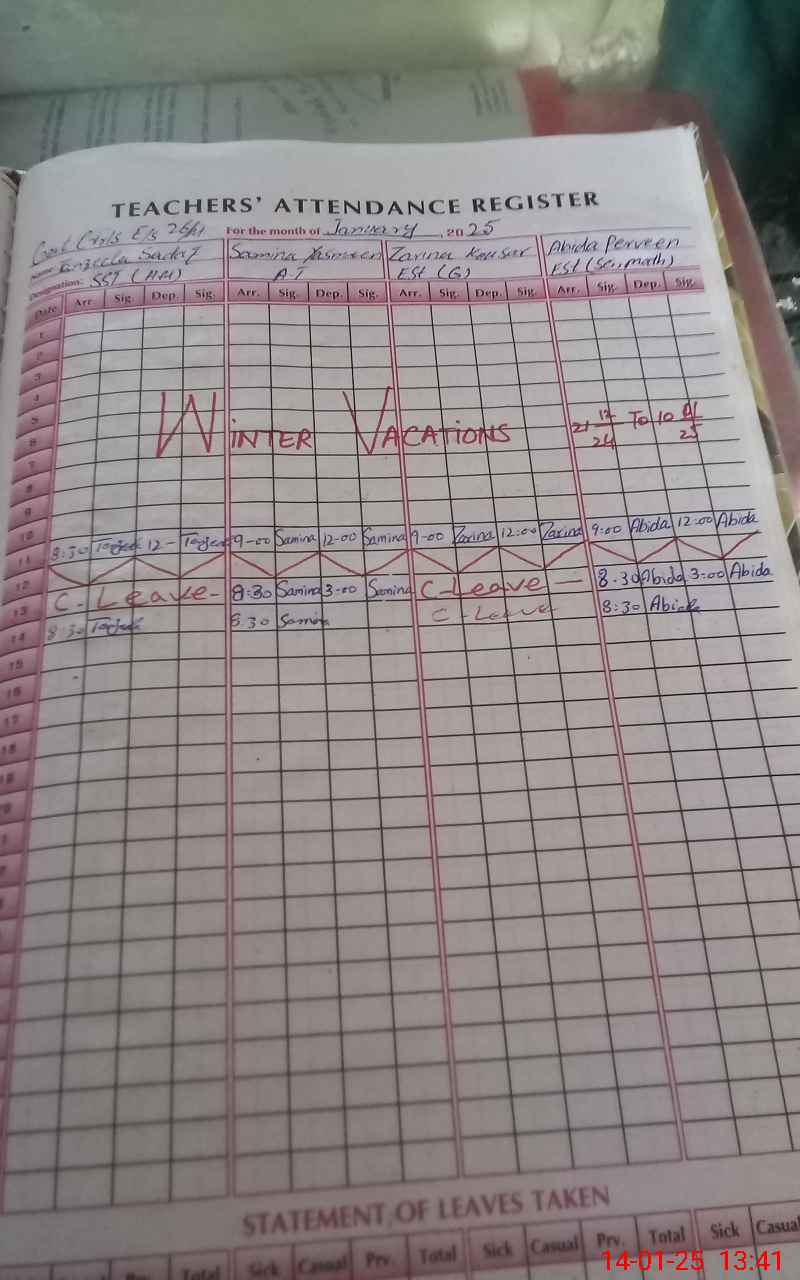 TEACHERS' ATTENDANCE REGISTER
Govt Girls E/s
For the month of January, 2025
Name: Sadaf Samina Yasmeen Zarina Kousar Abida Perveen
Designation: SST (HM) A.T ESt (G) ESt (Sci, math)
Date Arr Sig. Dep. Sig. Arr. Sig. Dep. Sig. Arr. Sig. Dep. Sig. Arr. Sig. Dep. Sig.
1
2
3
4
5 WINTER VACATIONS 21 12/24 To 10 01/25
6
7
8
9
10
11 8:30 12- 9-00 Samina 12-00 Samina 9-00 Zarina 12:00 Zarina 9:00 Abida 12:00 Abida
12
13 C-Leave- 8:30 Samina 3:00 Samina C-Leave- 8.30 Abida 3:00 Abida
14 8:30 8.30 Samina C-Leave 8:30 Abida
15
16
17
18
STATEMENT OF LEAVES TAKEN
Prv. Total Sick Casual Prv. Total Sick Casual Prv. Total Sick Casual
14-01-25 13:41